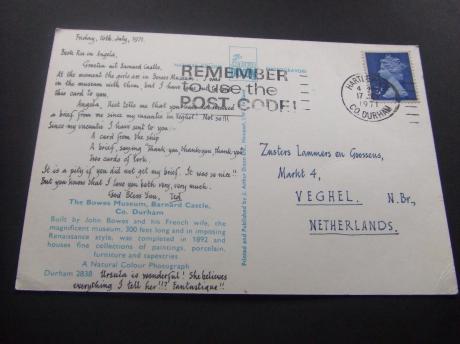 Friday, 16th July, 1971.
Beste Ria en Angela,
Groeten uit Barnard Castle.
At the moment the girls are in Bowes Museum. I was
in the museum with them, but I have
this card to them.
Angela, Riet tells me that you have not received
a brief from me since my vacantie in Veghel. Not so!!!
Since my vacantie I have sent to you :-
A card from the ship
A brief, saying "Thank you, thank you, thank you"
Two cards of York.
It is a pity if you did not get my brief. It was so nice!!
But you know that I love you both very, very much.
God Bless You, Ted
The Bowes Museum, Barnard Castle,
Co. Durham
Built by John Bowes and his French wife, the
magnificent museum, 300 feet long and in imposing
Renaissance style, was completed in 1892 and
houses fine collections of paintings, porcelain,
furniture and tapestries
A Natural Colour Photograph
Durham 2838
Ursula is wonderful! She believes
everything I tell her!!? Fantastique!!
Printed and Published by J. Arthur Dixon
REMEMBER
to use the
POST CODE!
17
1971
CO. DURHAM
Zusters Lammers en Goossens,
Markt 4,
VEGHEL. N.Br,
NETHERLANDS.